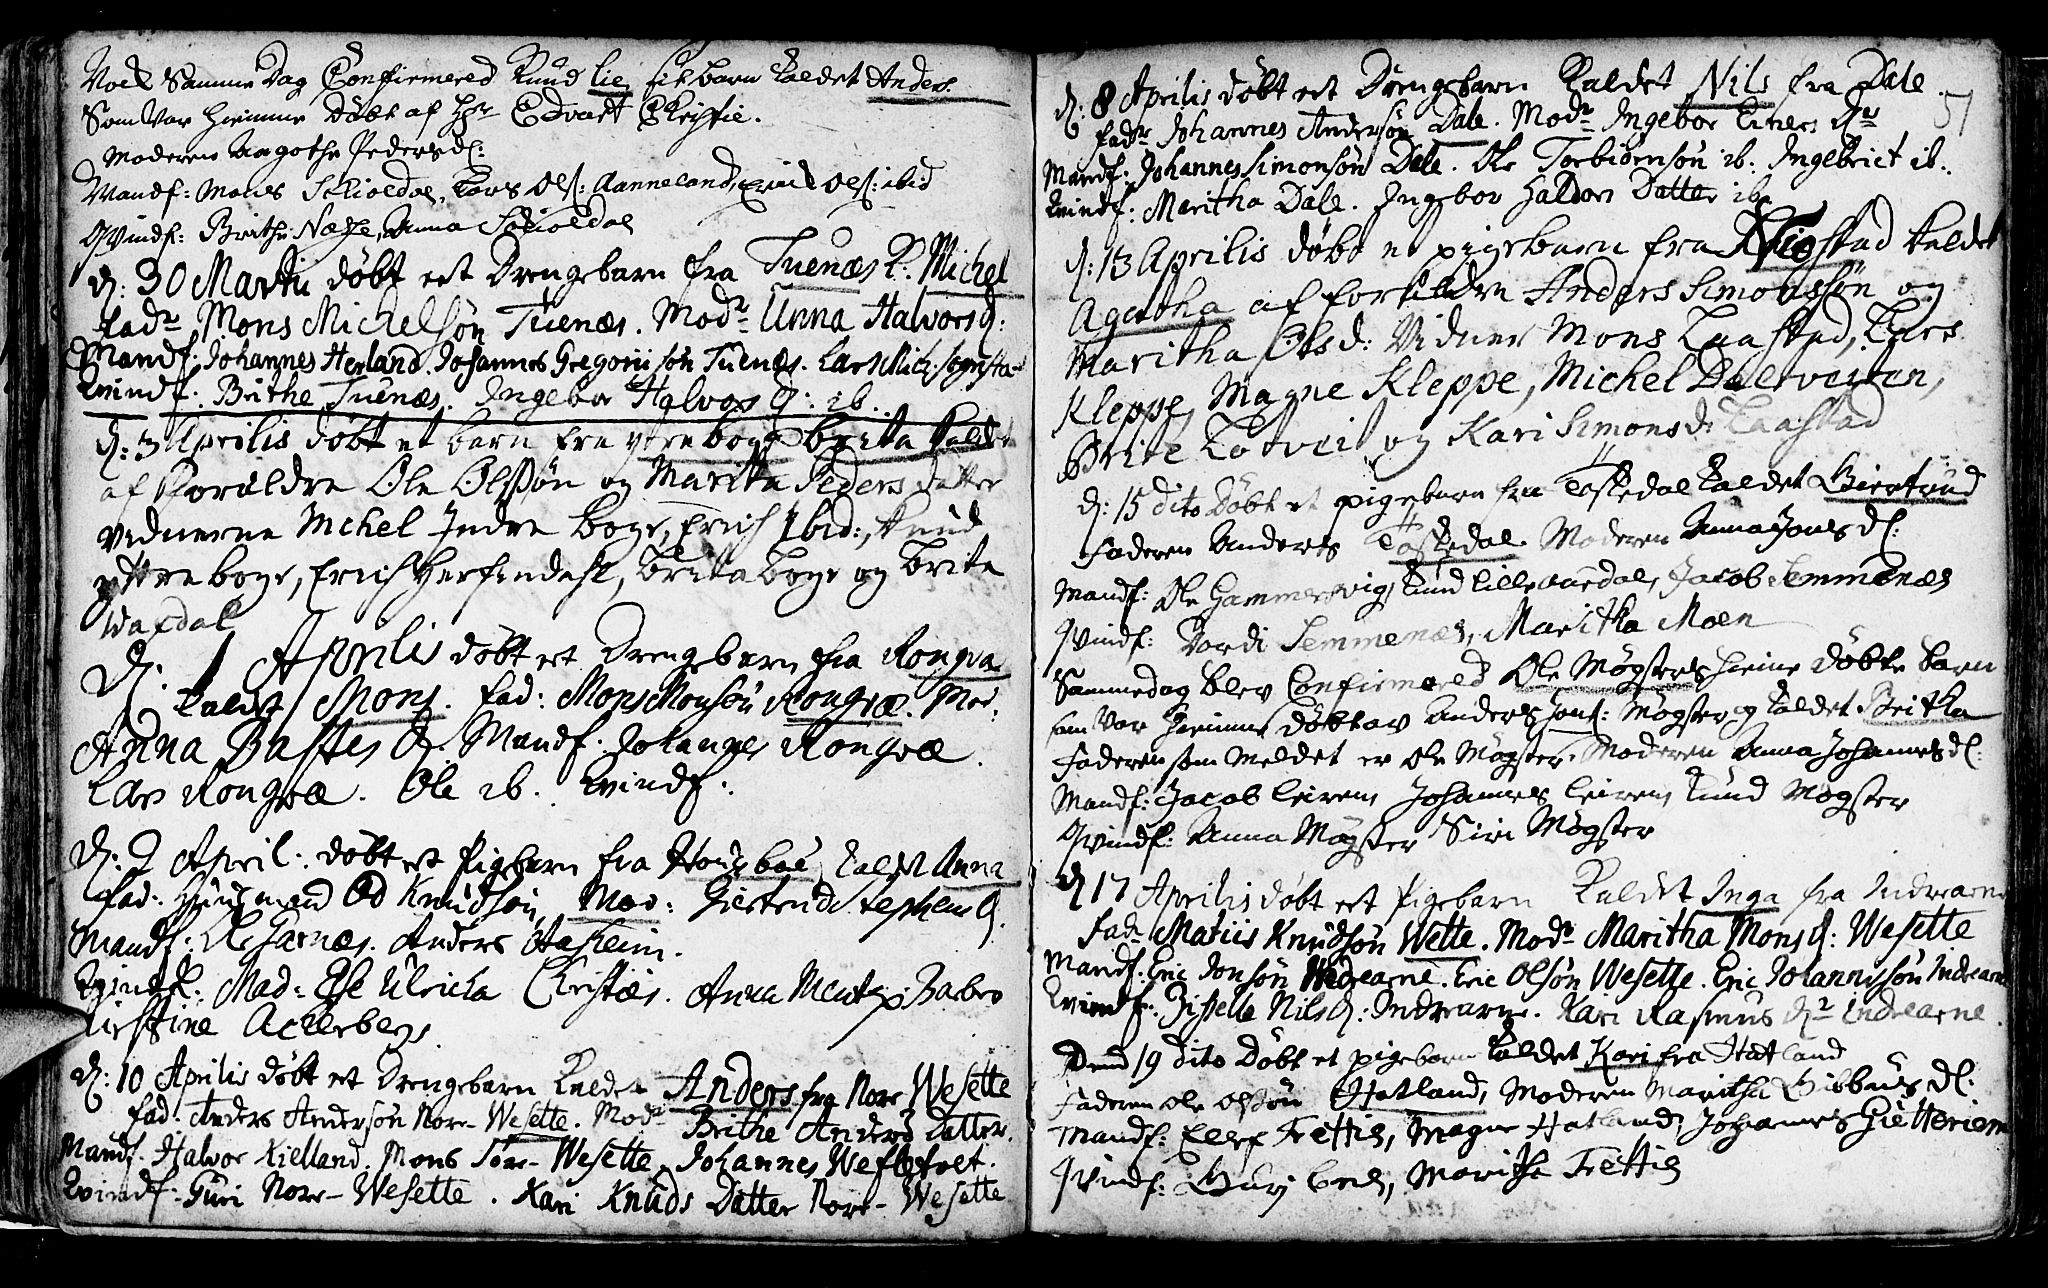 Noch Samme Dag Confirmered Knud Lie sit barn kaldet Anders
Som Var hiemme døbt af Hr Edvart Christie.
Moderen Aagothe Pedersd:
Mandf: Mons Schioldal, Lars Ols: Aanneland, Erich Ols: ibid
Qvindf: Brithe Næsse, Anna Schioldal
d: 30 Martii døbt eet Drengebarn fra Tuenæs k: Michel
fadr Mons Michelsøn Tuenæs. Modr Anna Halvors d:
Mandf: Johannes Herland. Johannes Gregoriisøn Tuenæs. Lars Mich:
Kvindf: Brithe Tuenæs. Ingebor Halvors d: ib.
d: 3 Aprilis døbt et barn fra ytre boge brita kaldet
af Forældre Ole Olssøn og Maritta Peders datter
vidnerne Mchel Indre boge, Erich Ibid:, Knud
yttre boge, Erich Herfindahl, brita boge og brite
Wafdal
D: 1 Aprilis døbt eet Drengebarn fra Rongvæ
kaldt Mons. fad: Mons Monsøn Rongvæ. Mod:
Anna Bastes d: Mandf. Johannes Rongvæ
Lars Rongvæ. Ole ib. Kvindf:
d: 2 April: døbt eet Pigebarn fra kaldt Anna
fad: Huusmand Od Knudsøn, Mod: Giertrud Stephens d.
Mandf: Ole Garnæs. Anders Aasheim.
Kvindf: Mad: Else Ulricha Christies. Anna Mentz: Barbro
Kirstine Ackerbergs
d: 10 Aprilis døbt eet Drengebarn kaldet Anders fra Nore Wesette
fad. Anders Andersøn Nore-Wesette. Modr Brithe Anders Datter.
Mandf. Halvor Kielland. Mons Tore-Wesette. Johannes
Kvindf: Guri Nore-Wesette. Kari Knuds Datter Nore-Wesette
51
d: 8 Aprilis døbt eet Drengebarn kaldet Nils fra Dale.
fadr Johannes Andersøn Dale. Modr Ingebor Einers dr
Mandf. Johannes Simonsøn Dale. Ole Torbiørnsøn ib. Ingebrict ib.
Kvindf: Maritha Dale. Ingebor Haldors Datter ib
d: 13 Aprilis døbt et pigebarn fra kaldet
Agatha af forældre Anders Simonssøn og
Maritha Olsd: Vidner Mons Taastad, Lars
Kleppe, Magne Kleppe, Michel
Brite og Kari Simonsd: Taastad
d: 15 dito Døbt et pigebarn fra Toskedal kaldet Giertrud
Faderen Anders Toskedal. Moderen Anna Jons d:
Mandf: Ole Gammersvig, Knud Lille aardal, Jacob Semmenæs
Qvindf: Vordi Semmenæs, Maritha Moen
Samme dag blev Confirmered Ole Møgsters hieme døbte barn
som var hiemme døbt av Anders Jons: Møgster og kaldet Britha
Faderen som meldet er Ole Møgster. Moderen Anna Johannesd:
Mandf: Jacob Leiren, Johannes Leiren, Knud Møgster
Qvindf: Anna Møgster Siri Møgster
d 17 Aprilis døbt eet Pigebarn kaldet Inga fra Indrearne
fadr Matiis Knudsøn Wette. Modr Maritha Mons d: Wesette
Mandf. Eric Jonsøn Indrearne. Eric Olsøn Wesette. Eric Johannissøn Indrearne
Kvindf. Zisselle Nils d: Indrearne. Kari Rasmus dr Indrearne.
Dend 19 dito Døbt et pigebarn kaldet Kari fra Hatland
Faderen Ole Olsøn Hatland, Moderen Maritha d:
Mandf: Ellef Trettes, Magne Hatland, Johannes
Qvindf: Gurj Maritha Trettes